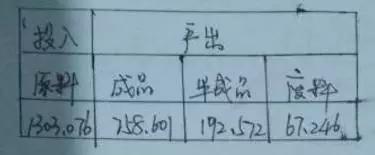 投入 产出
原料 成品 半成品 废料
1303.076 758.601 192.572 67.246